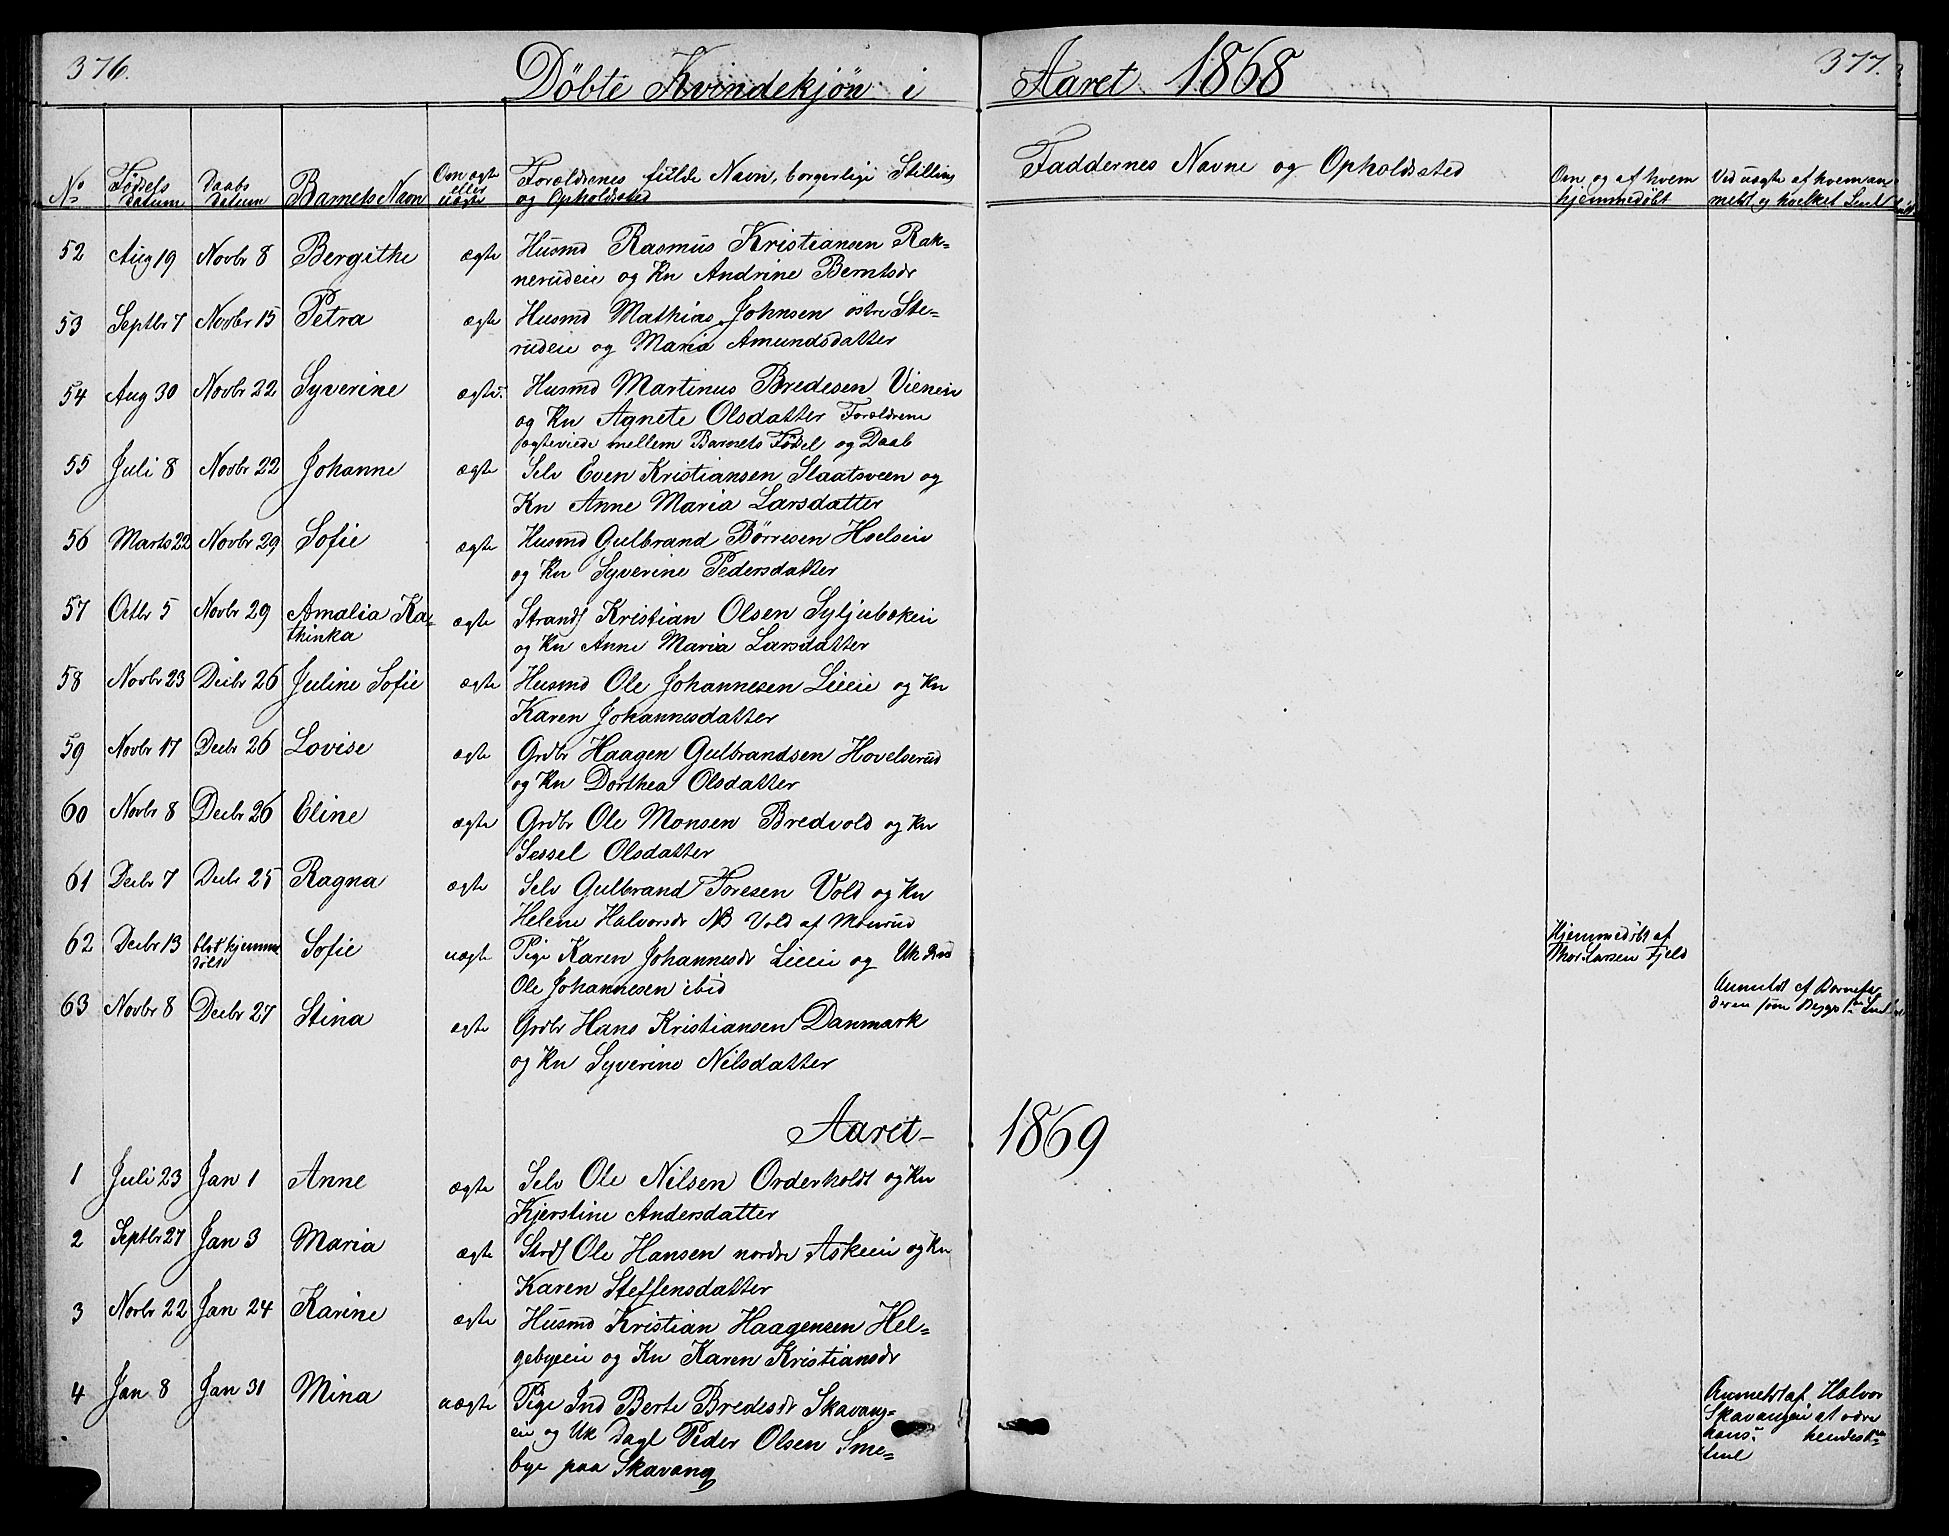 376.
Døbte Kvindekjøn i Aaret 1868
377.
No
Fødsels datum
Daabs Datum
Barnets Navn
Om ægte eller uægte
Forældrenes fulde Navn, borgerlige Stilling
og Opholdssted
Faddernes Navne og Opholdssted
Om og af hvem
hjemmedøbt
Ved uægte af hvem an
meldt og hvilket Leiel
52 Aug 19 Novbr 8 Bergithe ægte Husmd Rasmus Kristiansen Rak-
nerudeie og Kn Andrine Berntsdr
53 Septbr 7 Novbr 15 Petra ægte Husmd Mathias Johnsen østre Ste-
rudeie og Maria Amundsdatter
54 Aug 30 Novbr 22 Syverine ægte Husmd Martinus Bredesen Vieneie
og Kn Agnete Olsdatter Forældrene
ægteviede mellem Barnets Fødsel og Daab
55 Juli 8 Novbr 22 Johanne ægte Selv Even Kristiansen Slaatsveen og
Kn Anne Maria Larsdatter
56 Marts 22 Novbr 29 Sofie ægte Husmd Gulbrand Børresen Hoelseie
og Kn Syverine Pedersdatter
57 Octbr 5 Novbr 29 Amalia Ka- ægte Strands Kristian Olsen Syljubækeie
thinka og Kn Anne Maria Larsdatter
58 Novbr 23 Decbr 26 Juline Sofie ægte Husmd Ole Johannesen Lieeie og Kn
Karen Johannesdatter
59 Novbr 17 Decbr 26 Lovise ægte Grdbr Haagen Gulbrandsen Hovelserud
og Kn Dorthea Olsdatter
60 Novbr 8 Decbr 26 Eline ægte Grdbr Ole Monsen Bredvold og Kn
Sessel Olsdatter
61 Decbr 7 Decbr 25 Ragna ægte Selv Gulbrand Toresen Vold og Kn
Helene Halvorsdr NB Vold af Monrud
62 Decbr 13 blot hjemme Sofie uægte Pige Karen Johannesdr Lieeie og Uk
døbt Ole Johannesen ibid
Hjemmedøbt af
Thor Larsen Fjeld
Anmeldt af Barnefa
deren som Begges 1ste Leiel
63 Novbr 8 Decbr 27 Stina ægte Grdbr Hans Kristiansen Danmark
og Kn Syverine Nilsdatter
Aaret 1869
1 Juli 23 Jan 1 Anne ægte Selv Ole Nilsen Orderholdt og Kn
Kjerstine Andersdatter
2 Septbr 27 Jan 3 Maria ægte Strds Ole Hansen nordre Askeeie og Kn
Karen Steffensdatter
3 Novbr 22 Jan 24 Karine ægte Husmd Kristian Haagensen Hel-
gebyeeie og Kn Karen Kristiansdr
4 Jan 8 Jan 31 Mina uægte Pige Ind Berte Bredesdr Skavang-
eie og Uk Dagl Peder Olsen Sme-
bye paa Skavang
Anmeldt af Halvor
Skavangeie at være
hans hendes
Leiel